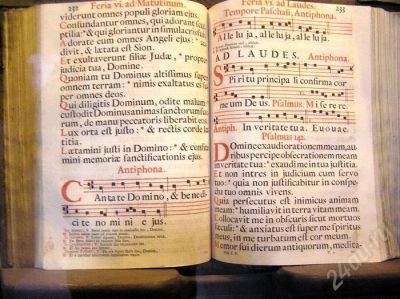 232 Feria vi. ad Matutinum.
viderunt omnes populi gloriam ejus.
Confundantur omnes, qui adorant scul-
ptilia: * & qui gloriantur in simulacris
Adorate eum omnes Angeli ejus: *
divit, & lætata est Sion.
Et exultaverunt filiæ Judæ, * propter
judicia tua, Domine.
Quoniam tu Dominus altissimus super
omnem terram: * nimis exaltatus es su-
per omnes deos.
Qui diligitis Dominum, odite malum:
custodit Dominus animas sanctorum
rum, de manu peccatoris liberabit eos.
Lux orta est justo: * & rectis corde læ-
titia.
Lætamini justi in Domino: * & confite-
mini memoriæ sanctificationis ejus.
Antiphona.
Cantate Domino, & bene di-
ci te no mi ni e jus.
Feria vi. ad Laudes. 233
Tempore Paschali, Antiphona.
Al le lu ja, al le lu ja, al le lu ja.
AD LAUDES. Antiphona.
Spi ri tu principa li confirma cor
me um De us. Psalmus. Mi se re re.
Antiph. In veritate tua. Euouae.
Psalmus 142.
Domine exaudi orationem meam, au-
ribus percipe obsecrationem meam
in veritate tua: * exaudi me in tua justitia.
Et non intres in judicium cum servo
tuo: * quia non justificabitur in conspe-
ctu tuo omnis vivens.
Quia persecutus est inimicus animam
meam: * humiliavit in terra vitam meam.
Collocavit me in obscuris sicut mortuos
sæculi: * & anxiatus est super me spiritus
meus, in me turbatum est cor meum.
Memor fui dierum antiquorum, medita-